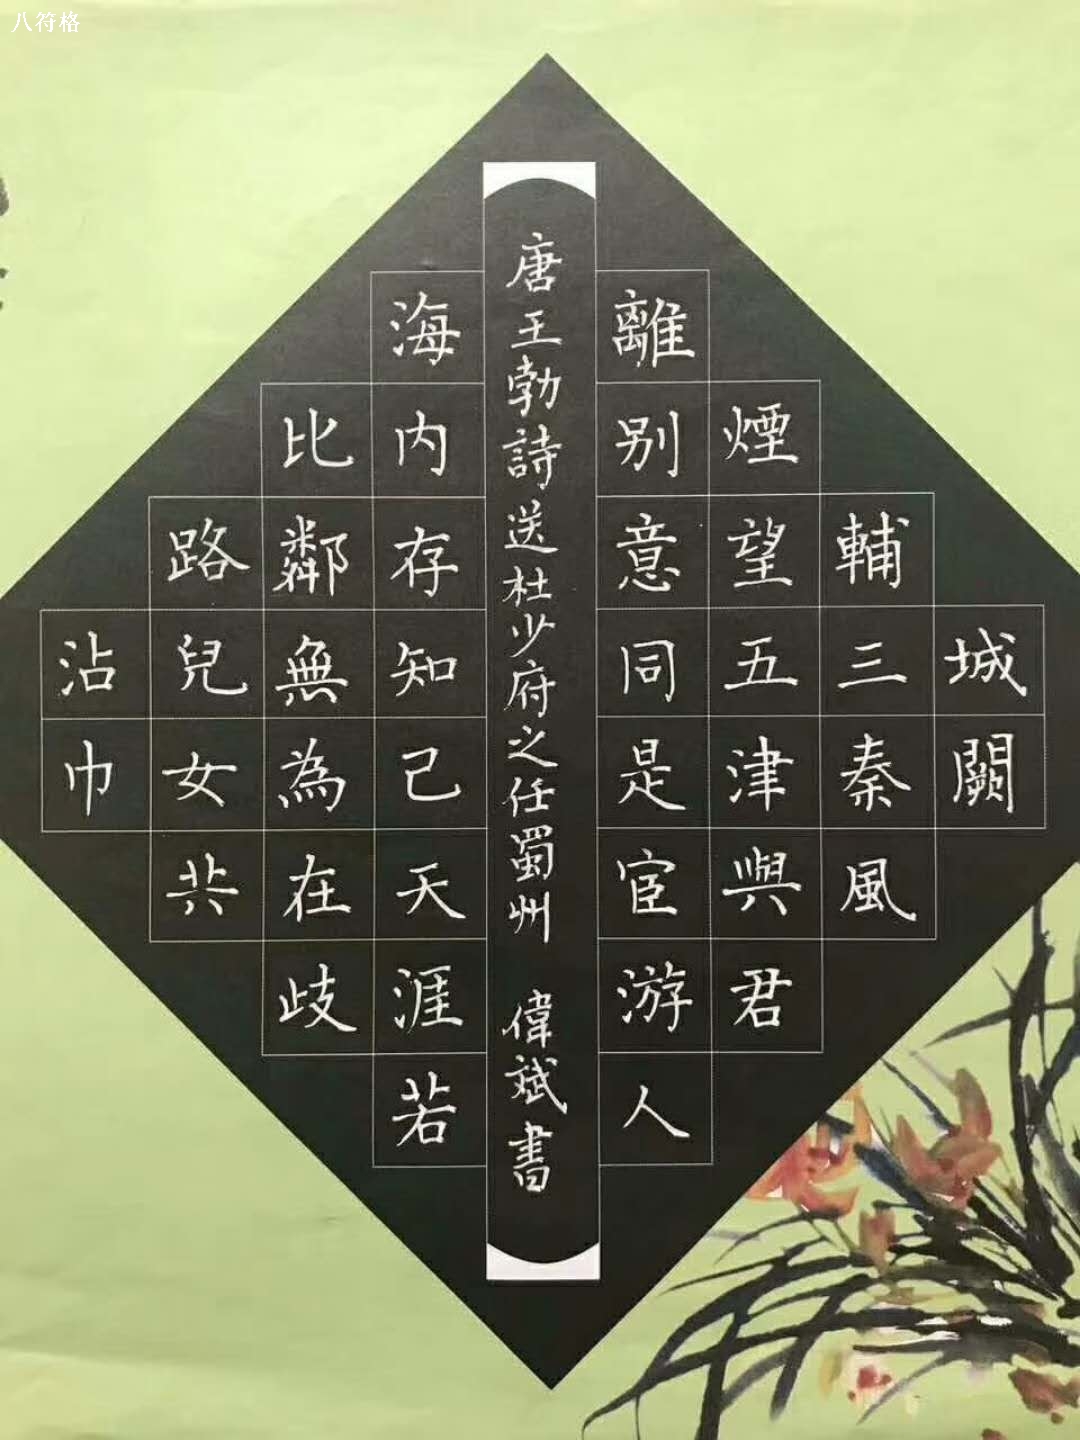 八符格
城闕
輔三秦風
煙望五津與君
離别意同是宦游人
唐王勃詩送杜少府之任蜀州 偉斌書
海内存知己天涯若
比鄰無為在歧
路兒女共
沾巾